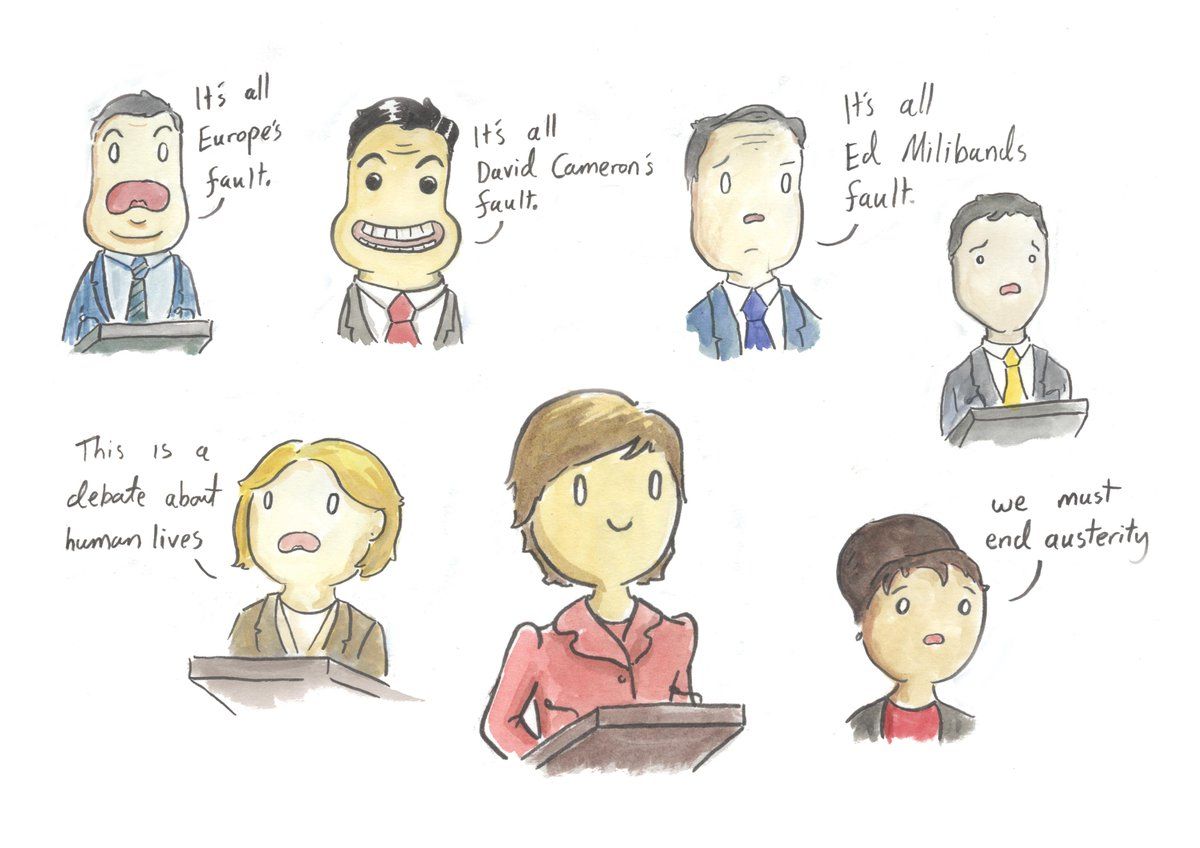 It's all
Europe's
fault.
It's all
David Cameron's
fault.
It's all
Ed Milibands
fault.
This is a
debate about
human lives
we must
end austerity